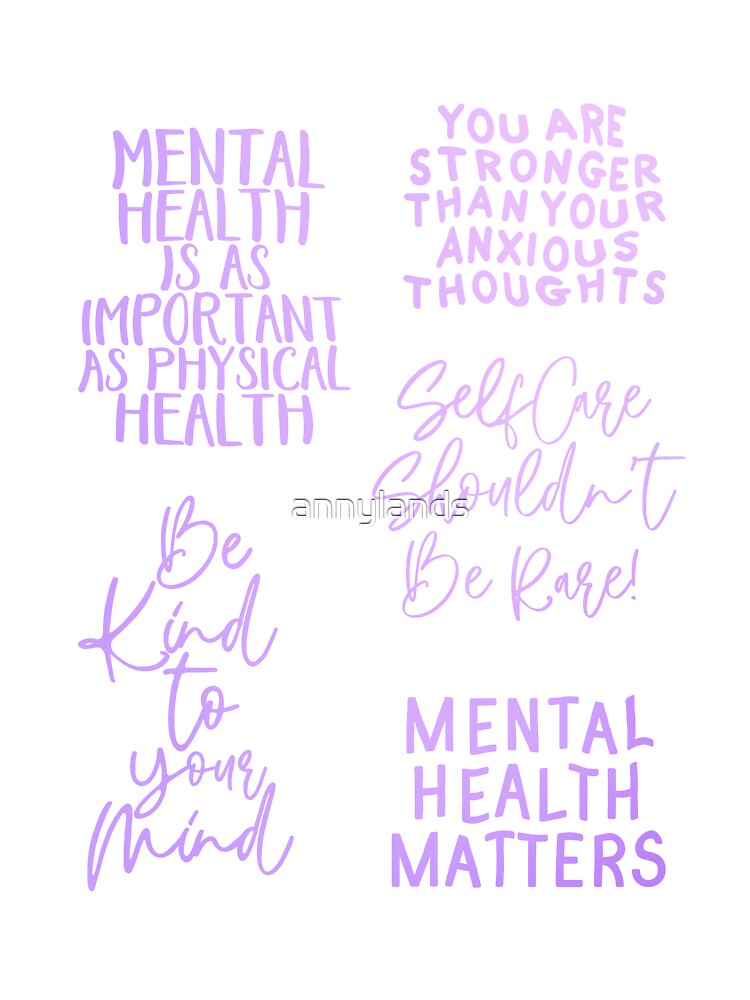 MENTAL
HEALTH
IS AS
IMPORTANT
AS PHYSICAL
HEALTH
YOU ARE
STRONGER
THAN YOUR
ANXIOUS
THOUGHTS
Self Care
Shouldn't
Be Rare!
annylands
Be
Kind
to
your
Mind
MENTAL
HEALTH
MATTERS